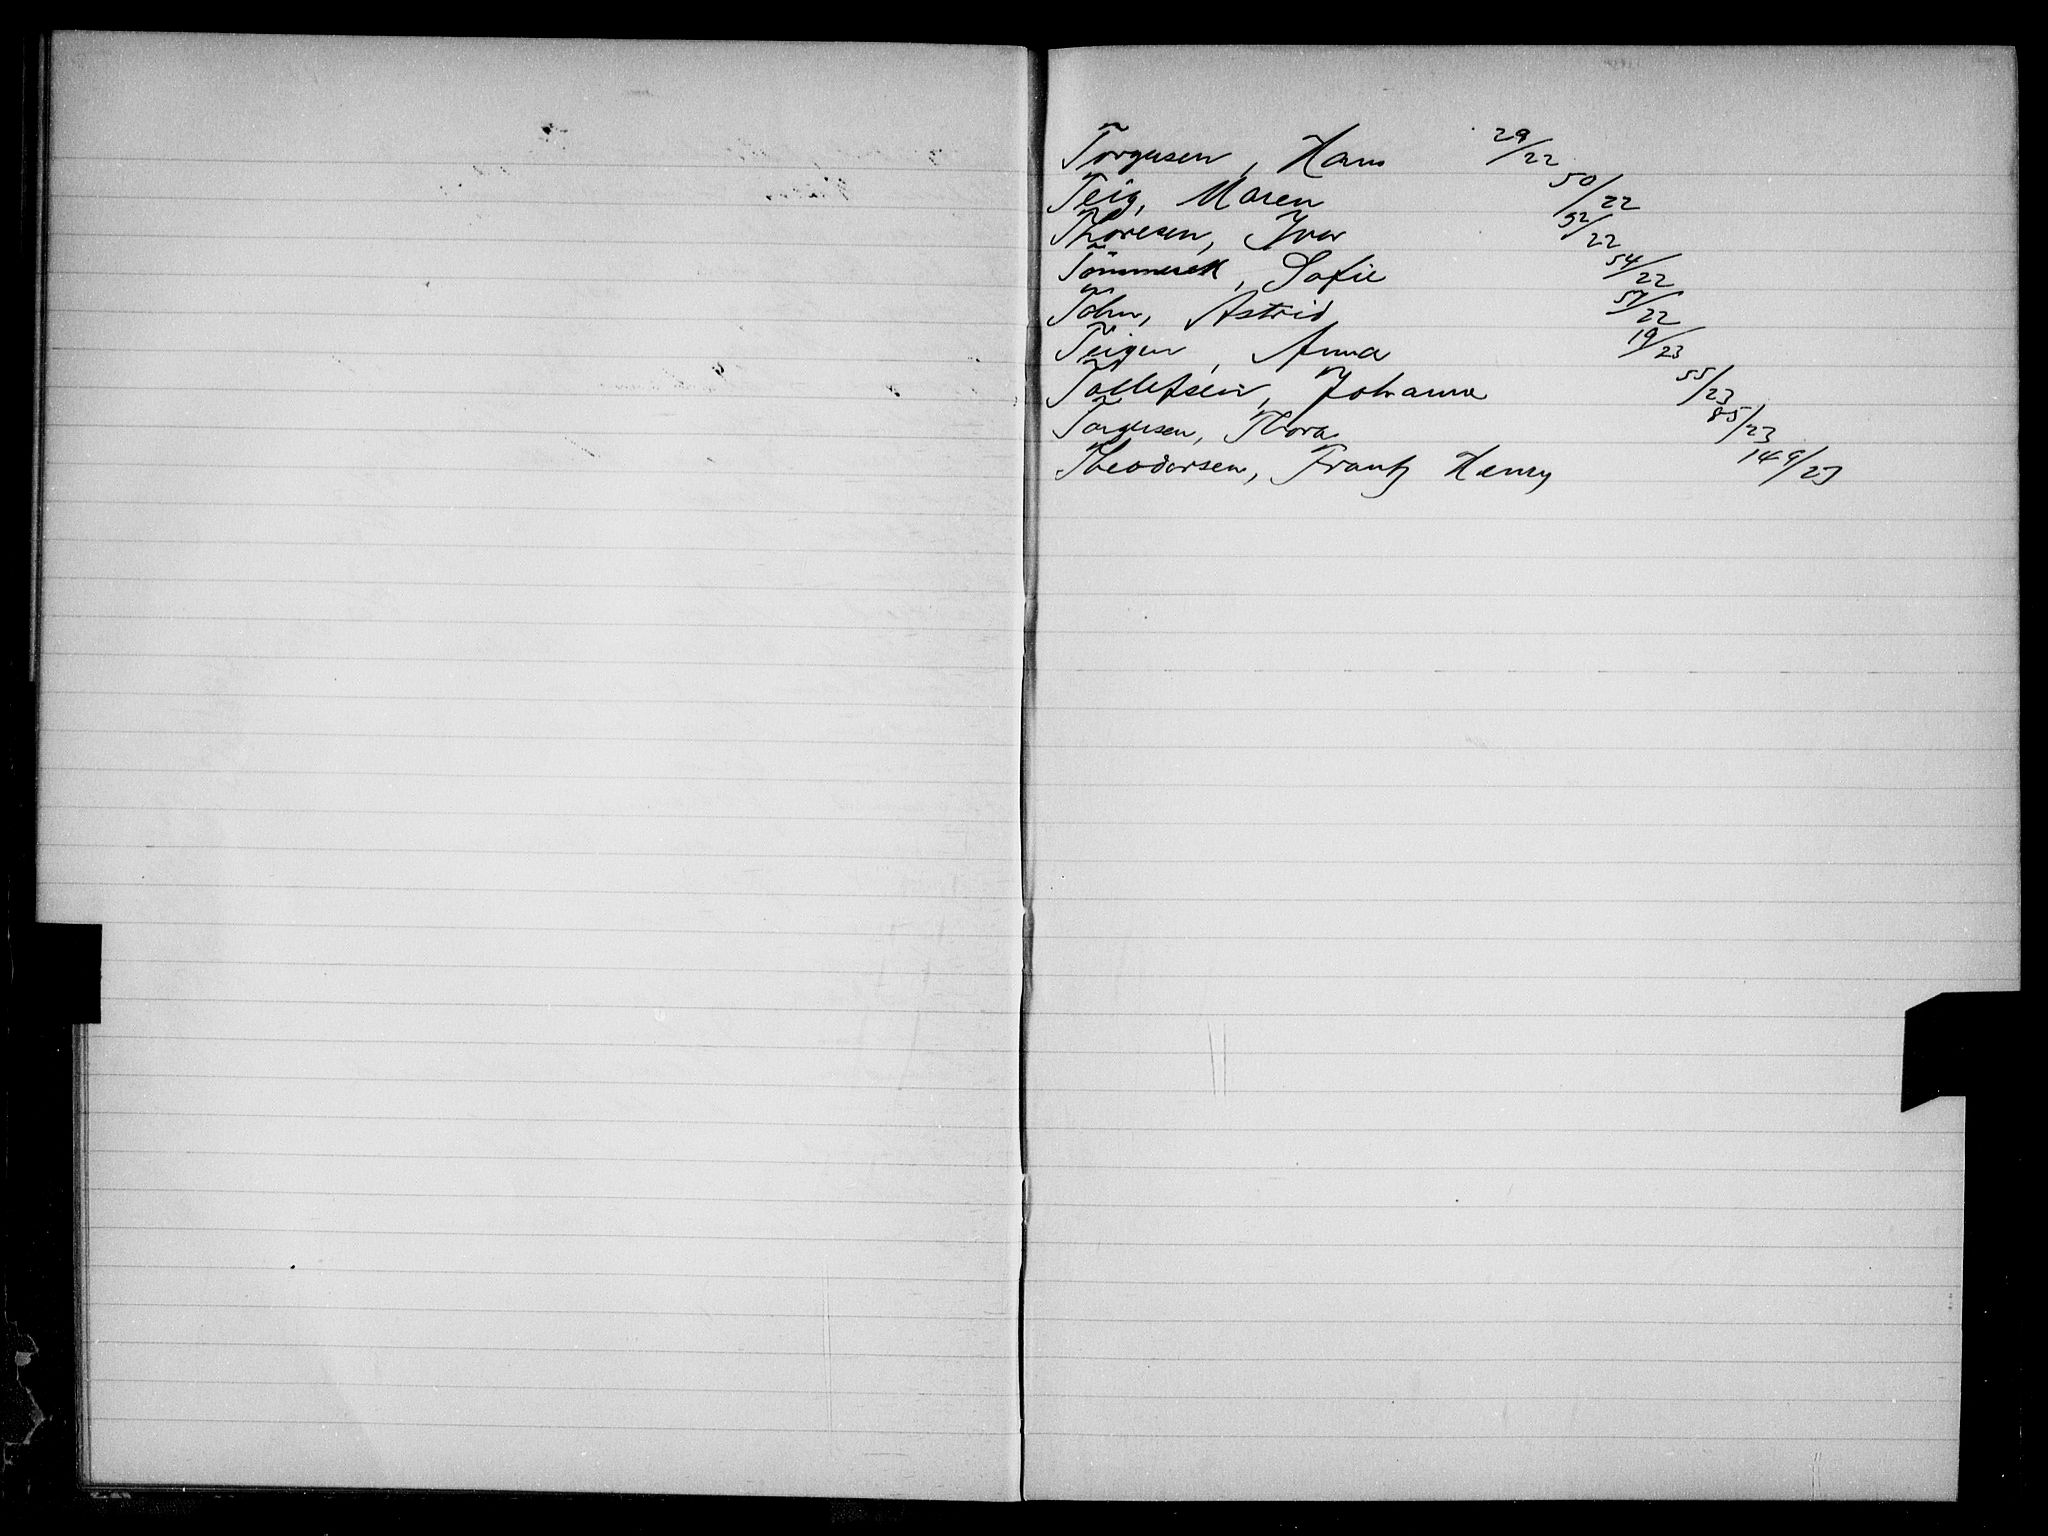 Torgusen, Hans 29/22
Teig, Maren 50/22
Thoresen, Iver 52/22
Sofie 54/22
Tohn, Astrid 57/22
Teigen, Anna 19/23
Tollefsen, Johanna 55/23
Torgusen, Thora 85/23
Theodorsen, Frantz Henry 149/23